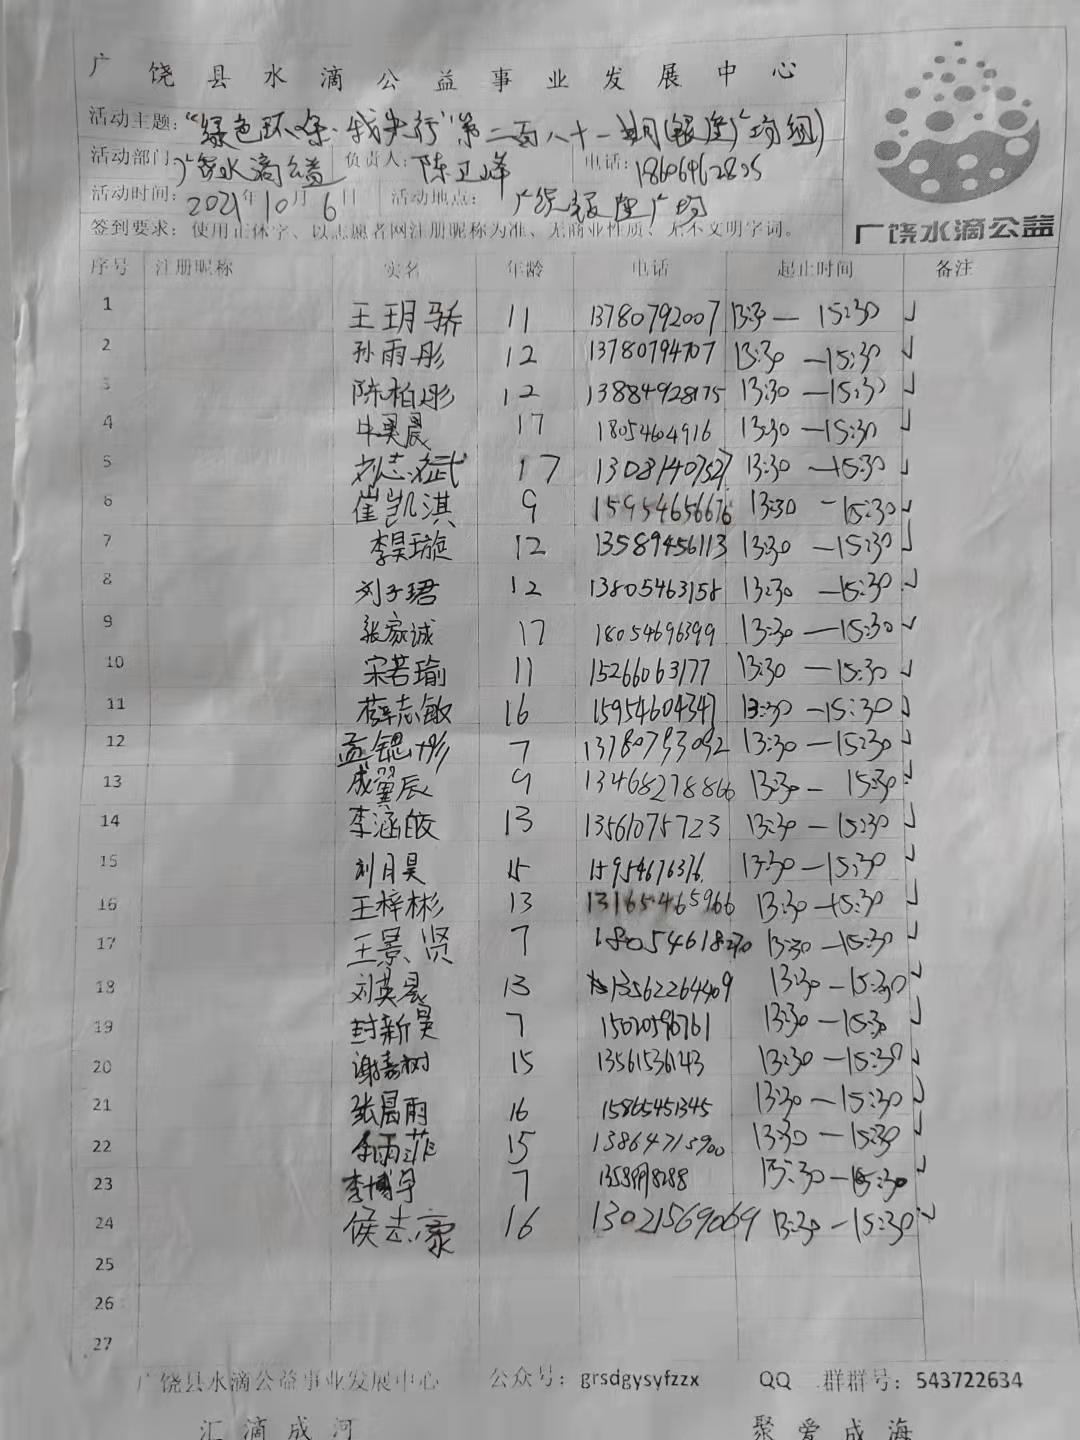 广饶县水滴公益事业发展中心
活动主题:"绿色环保·我先行"第二百八十一期(银座广场组)
活动部门:广饶水滴公益 负责人:陈卫峰 电话:18606462835
活动时间:2021年10月6日 活动地点:广饶银座广场
签到要求:使用正体字、以志愿者网注册昵称为准、无商业性质、无不文明字词。
广饶水滴公益
序号 注册昵称 实名 年龄 电话 起止时间 备注
1 王玥骄 11 13780792007 13:30 — 15:30 √
2 孙雨彤 12 13780794707 13:30 — 15:30 √
3 陈柏彤 12 13884928175 13:30 — 15:30 √
4 牛昊晨 17 18054604916 13:30 — 15:30 √
5 刘志斌 17 13081407527 13:30 — 15:30 √
6 崔凯淇 9 15954656676 13:30 — 15:30 √
7 李昊璇 12 13589456113 13:30 — 15:30 √
8 刘子珺 12 13805463158 13:30 — 15:30 √
9 张家诚 17 18054696399 13:30 — 15:30 √
10 宋若瑜 11 15266063177 13:30 — 15:30 √
11 薛志敏 16 15954604347 13:30 — 15:30 √
12 孟锶彤 7 13780793092 13:30 — 15:30 √
13 成翼辰 9 13468278866 13:30 — 15:30 √
14 李涵皎 13 13561075723 13:30 — 15:30 √
15 刘月昊 15 15954676376 13:30 — 15:30 √
16 王梓彬 13 13165465966 13:30 — 15:30 √
17 王景贤 7 18054618270 13:30 — 15:30 √
18 刘英晨 13 13562264409 13:30 — 15:30 √
19 封新昊 7 15020596761 13:30 — 15:30 √
20 谢嘉树 15 13561536143 13:30 — 15:30 √
21 张晨雨 16 15865451345 13:30 — 15:30 √
22 雨菲 15 13864715900 13:30 — 15:30 √
23 李博宇 7 13:30 — 15:30 √
24 侯志豪 16 13021569069 13:30 — 15:30 √
25
26
27
广饶县水滴公益事业发展中心 公众号:grsdgysyfzzx QQ 二群群号:543722634
汇滴成河 聚爱成海